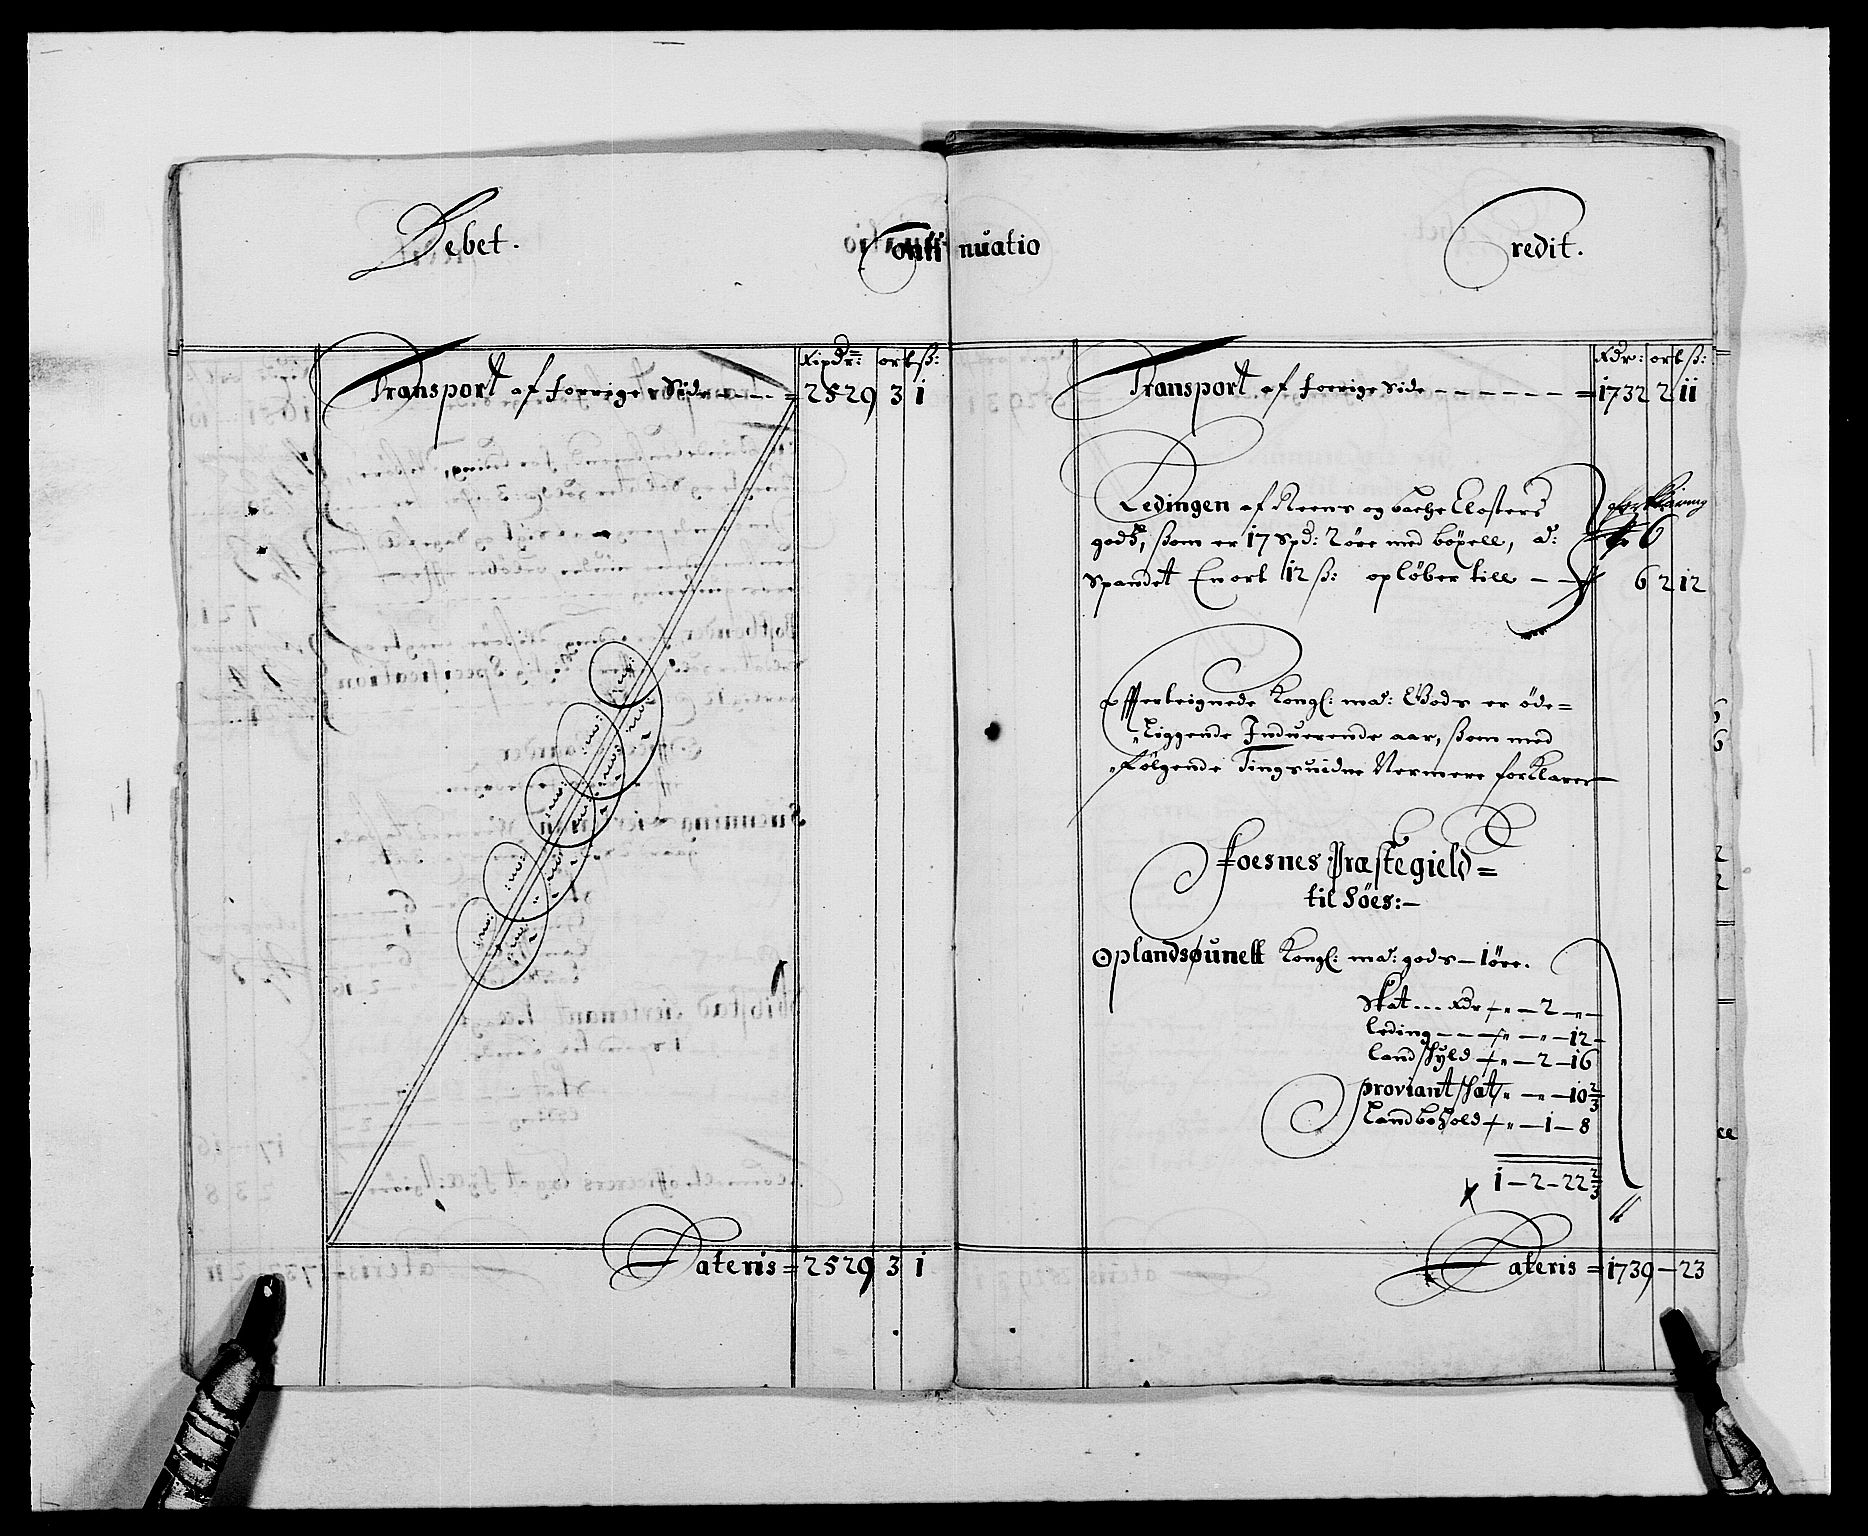 Debet.
Continuatio
Credit.
Rixdr: ort ß:
Transport af forrige Side - - - - = 2529 3 1
Lateris = 2529 3 1
Rdr: ort ß:
Transport af forrige Side - - - - - - = 1732 2 11
Ledingen af Reens og bache Closters
godz, som er 17 Spd: 2 øre med böxell, a:
Spandet En ort 12 ß: opløber till - - 6 2 12
forklaring
6
Effterteignede Kongl: ma: Gods er øde=
liggende Induerende aar, som med
følgende Tingsuidne Nermere forklarer
Foesnes Præstegield=
til Söes:-
Oplandsøunelt Kongl: ma: gods - 1 öre.
Skat - - - Rdr „ - 2 - „ -
leding - - - „ - „ - 12 -
landskyld - „ - 2 - 16
proviantskat „ - „ - 10 2/3
landbohold - „ - 1 - 8
1 - 2 - 22 2/3
Lateris = 1739 - 23